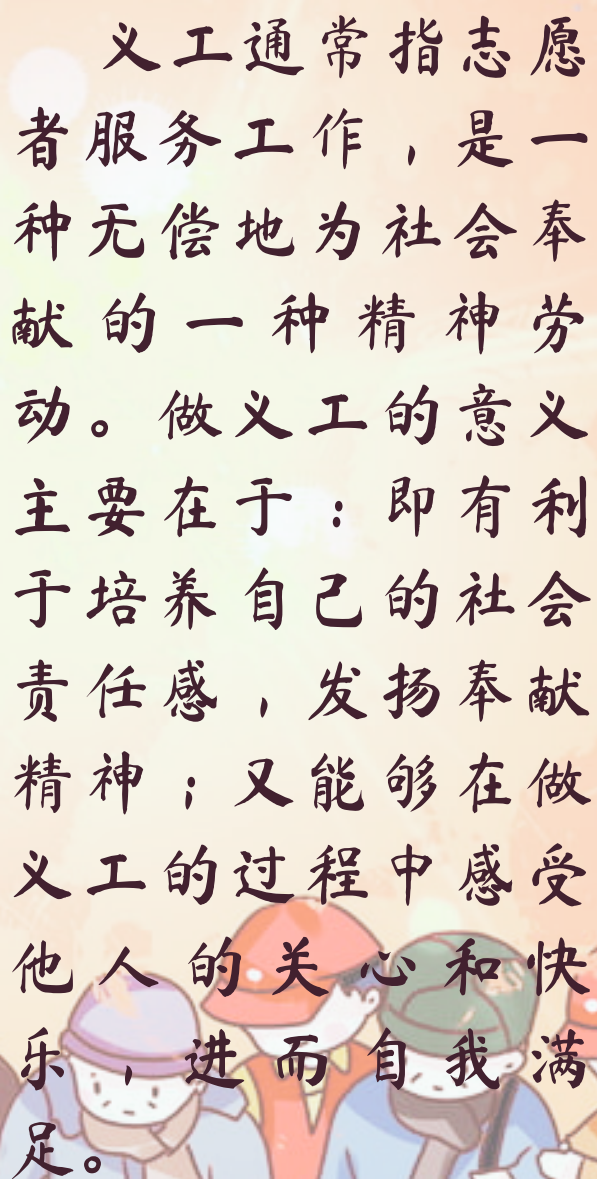 义工通常指志愿
者服务工作，是一
种无偿地为社会奉
献的一种精神劳
动。做义工的意义
主要在于：即有利
于培养自己的社会
责任感，发扬奉献
精神；又能够在做
义工的过程中感受
他人的关心和快
乐，进而自我满
足。